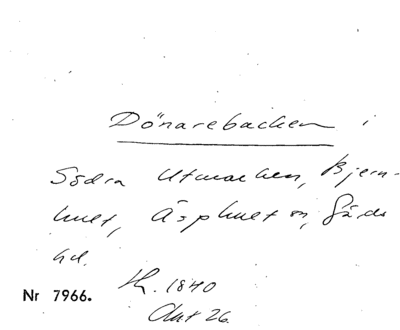 Dönarebacken i
Södra Utmarken, Bjern-
hult, Äsphult sn, Gärds
hd.
Nr 7966.
1840
Akt 26.